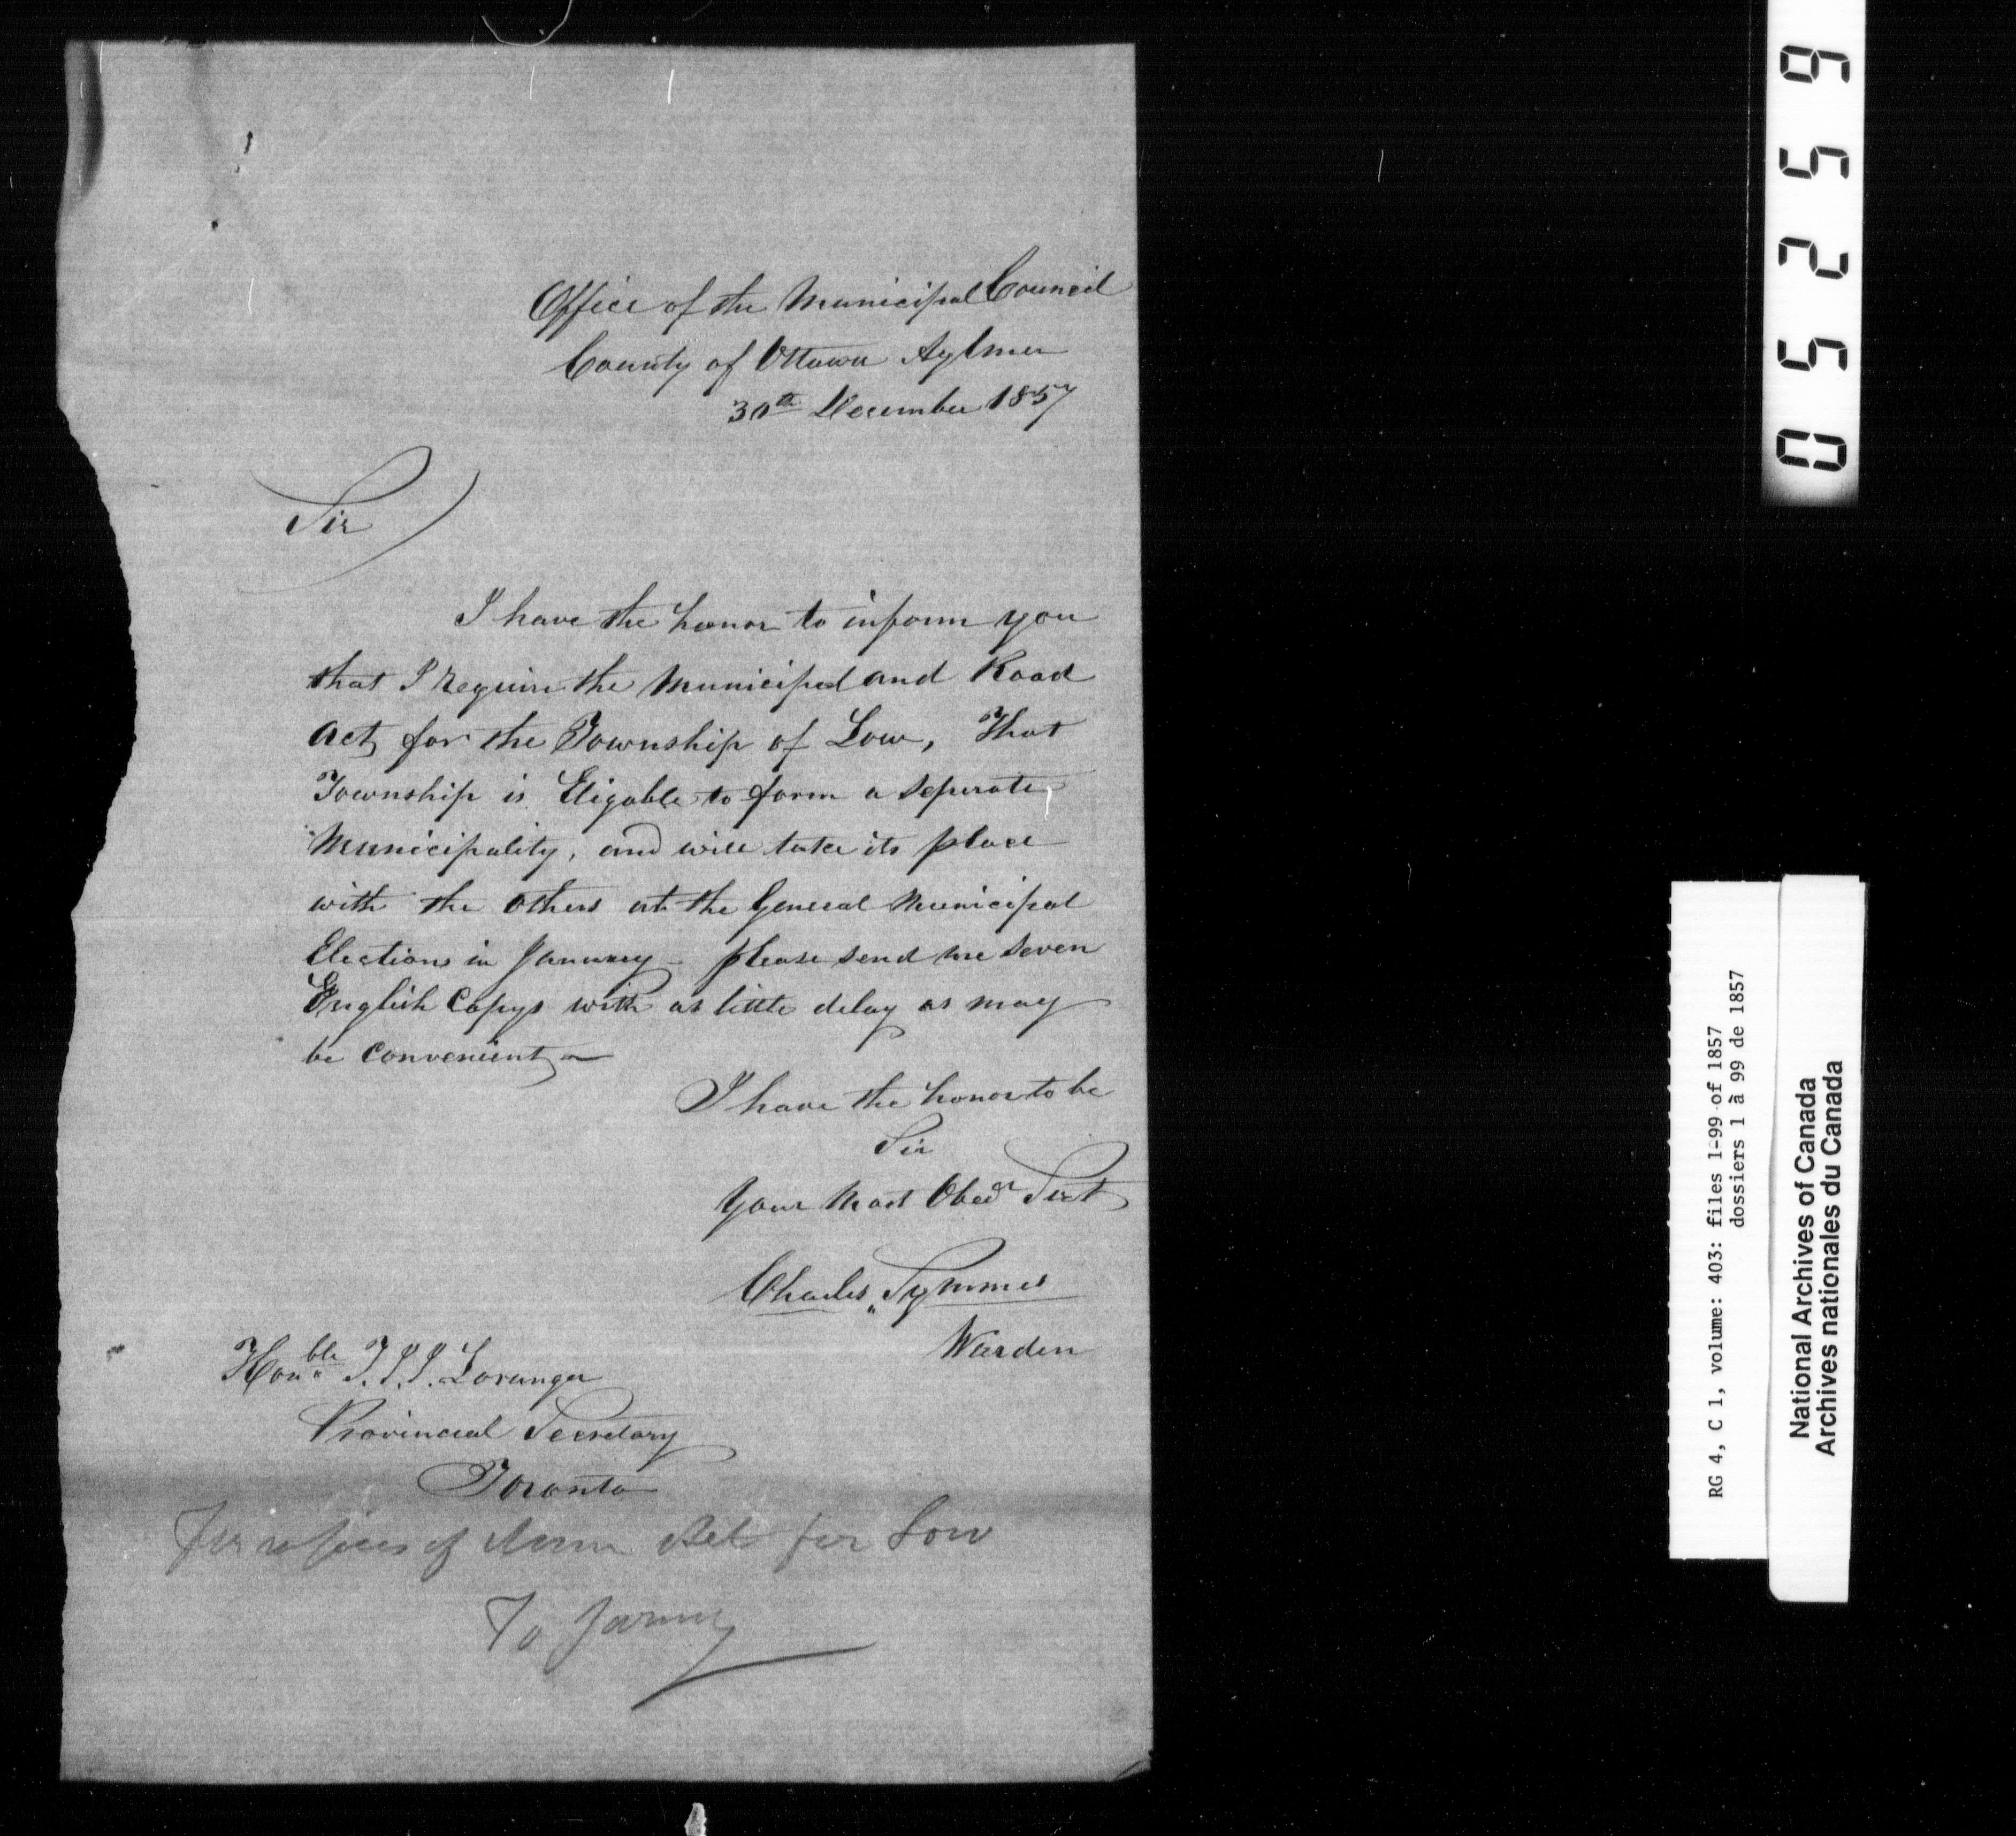 Office of the Municipal Council
County of Ottawa Aylmer
30th December 1857
Sir
I have the honor to inform you
that I require the Municipal and Road
Act, for the Township of Low, That
Township is Eligable to form a seperate
Municipality, and will take its place
with the others at the General Municipal
Elections in January - please send me seven
English Copys with as little delay as may
be convenient -
I have the honor to be
Sir
Your Most Obedt Servt
Charles Symmes
Warden
Honble T. J. J. Loranger
Provincial Secretary
Toronto
for copies of Mun Act for Low
To
05259
RG 4, C 1, volume: 403: files 1-99 of 1857
dossiers 1 à 99 de 1857
National Archives of Canada
Archives nationales du Canada